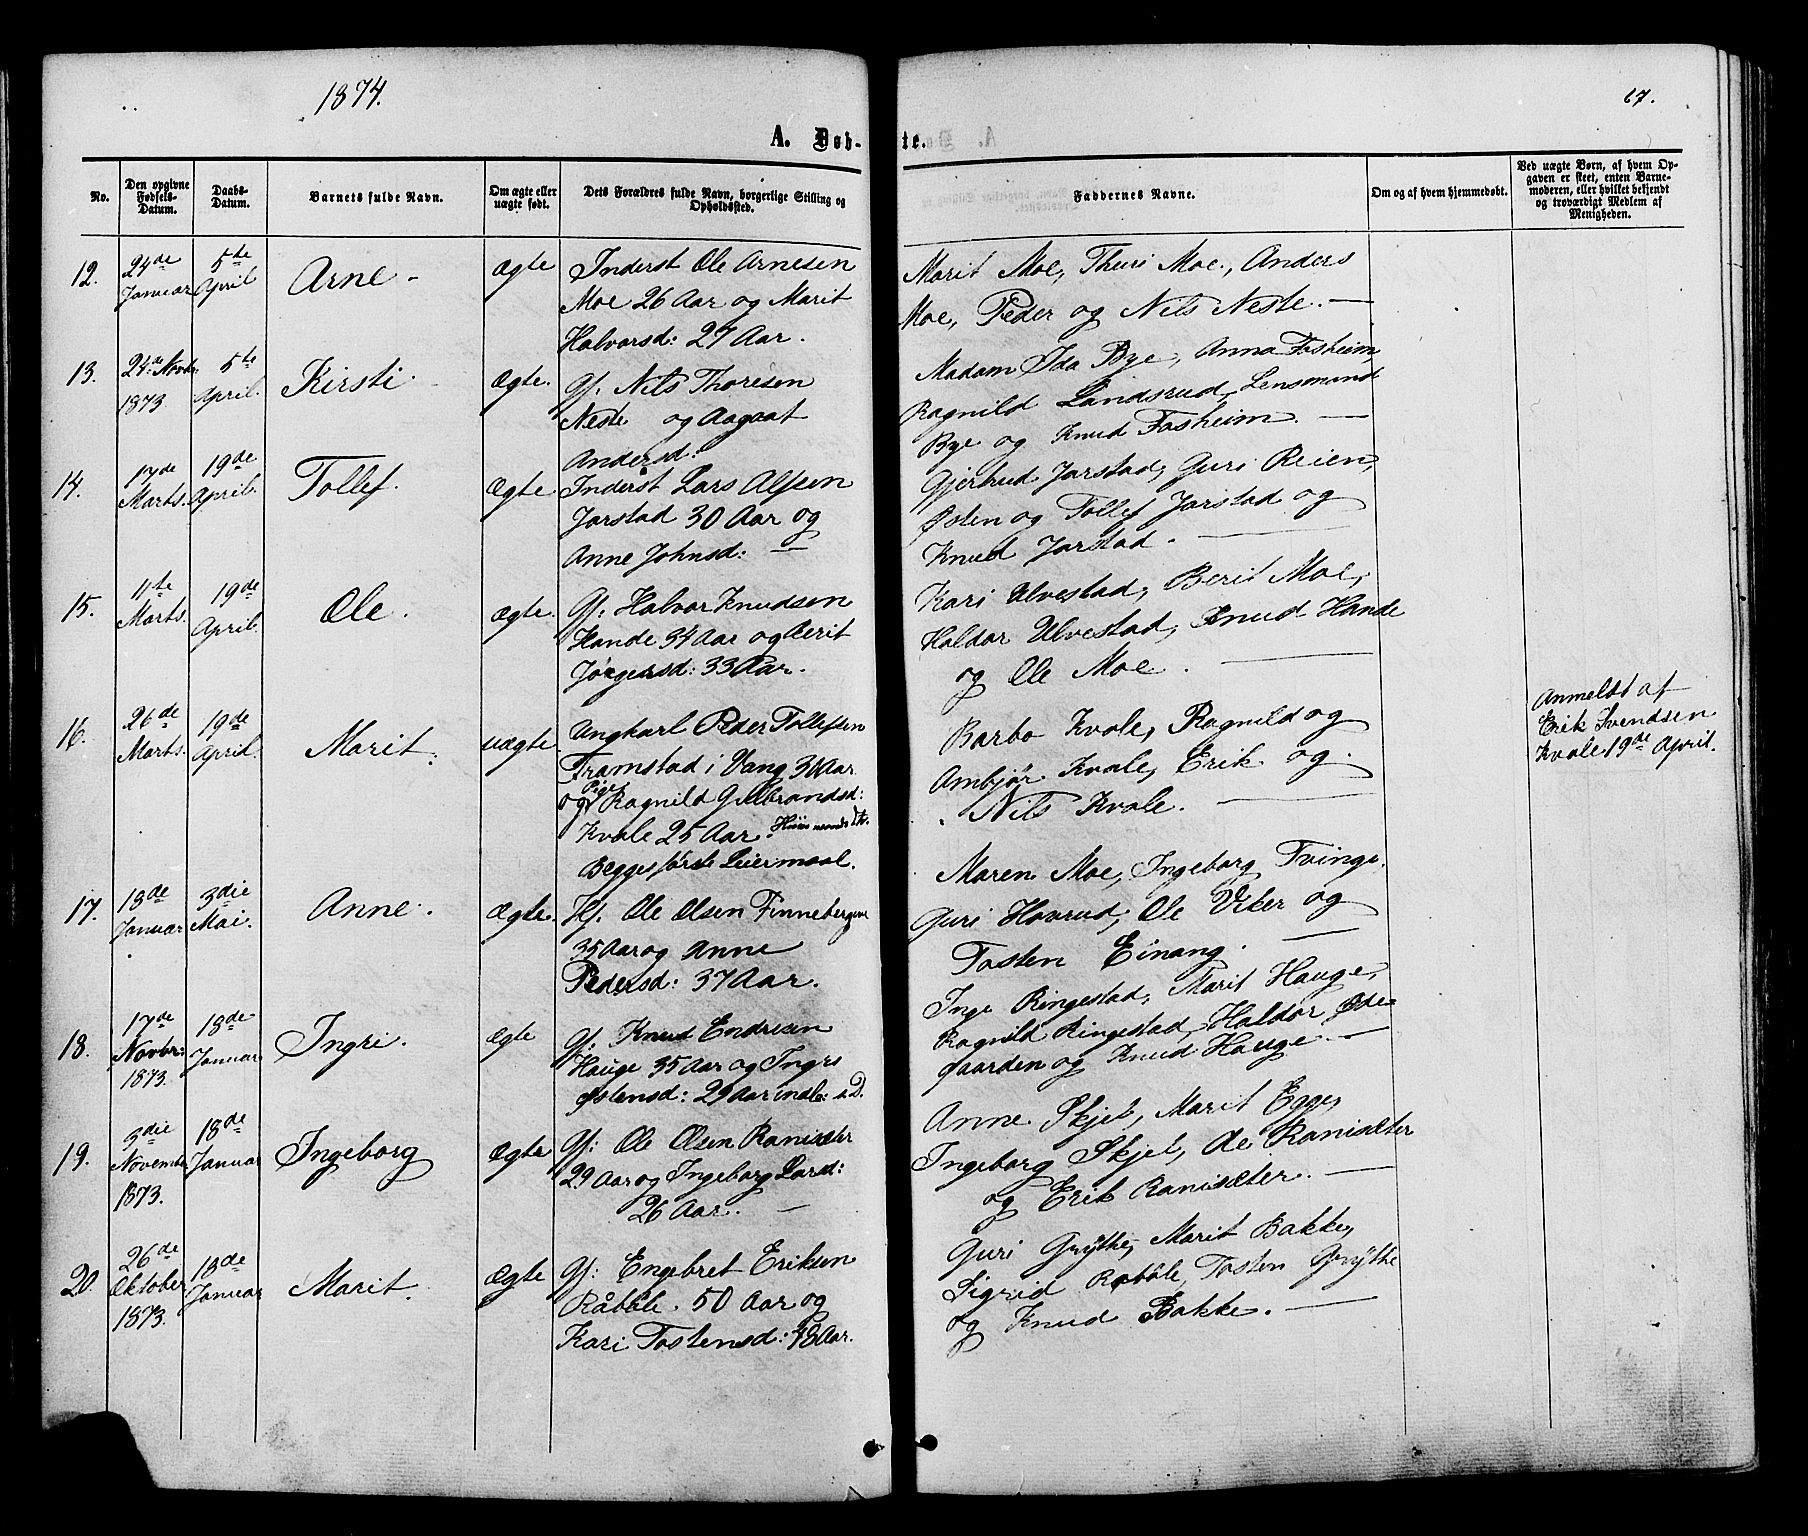 1874.
67.
A. Døb-
te.
No.
Den opgivne Fødsels-Datum.
Daabs-Datum.
Barnets fulde Navn.
Om ægte eller uægte født.
Dets Forældres fulde Navn, borgerlige Stilling og Opholdssted.
Faddernes Navne.
Om og af hvem hjemmedøbt.
Ved uægte Børn, af hvem Op-
gaven er skeet, enten Barne-
moderen, eller hvilket bekjendt
og troværdigt Medlem af
Menigheden.
12.
24de Januar
5te April
Arne -
Ægte
Inderst Ole Arnesen
Moe 26 Aar og Marit
Halvorsd: 27 Aar.
Marit Moe, Thuri Moe, Anders
Moe, Peder og Nils Neste. —
13.
24de Novbr: 1873
5te April.
Kirsti
Ægte.
Gf: Nils Thoresen
Neste og Aagaat
Andersd:
Madam Ida Bye, Anna Fosheim,
Ragnild Landsrud, Lensmand
Bye og Knud Fosheim. —
14.
17de Marts.
19de April.
Tollef.
Ægte
Inderst Lars Alfsen
Jarstad 30 Aar og
Anne Johnsd: —
Gjertrud Jarstad, Guri Reien,
Østen og Tollef Jarstad og
Knud Jarstad. —
15.
11te Marts.
19de April.
Ole.
Ægte.
Gf: Halvor Knudsen
Hande 34 Aar og Berit
Jørgensd: 33 Aar.
Kari Ulvestad, Berit Moe,
Haldor Ulvestad, Knud Hande
og Ole Moe. —
16.
26de Marts.
19de April.
Marit.
uægte
Ungkarl Peder Tollefsen
Framstad i Vang 30 Aar
og Pige Ragnild Gulbrandsd:
Kvale 25 Aar. Huusmands Dtr.
Begges første Leiermaal.
Barbo Kvale, Ragnild og
Ambjør Kvale, Erik og
Nils Kvale. —
Anmeldt af
Erik Svendsen
Kvale 19de April.
17.
18de Januar
3die Mai.
Anne.
Ægte.
Hf: Ole Olsen Finnebergene
35 Aar og Anne
Pedersd: 37 Aar.
Maren Moe, Ingeborg Tvinge,
Guri Hovrud, Ole Viker og
Tosten Einang. —
18.
17de Novbr: 1873.
18de Januar
Ingri.
Ægte
Gf: Knud Endresen
Hauge 35 Aar og Ingri
Østensd: 29 Aar indl: i D.
Inge Ringestad, Marit Hauge,
Ragnild Ringestad, Haldor Øde-
gaarden og Knud Hauge. —
19.
3die November 1873.
18de Januar
Ingeborg
Ægte
Gf: Ole Olsen Ranisæter
29 Aar og Ingeborg Larsd:
26 Aar. —
Anne Skjel, Marit Egge,
Ingeborg Skjel, Ole Ranisæter
og Erik Ranisæter. —
20.
26de Oktober 1873.
18de Januar
Marit.
Ægte
Gf: Engebret Eriksen
Råbøle. 50 Aar og
Kari Tostensd: 48 Aar.
Guri Grythe, Marit Bakke,
Sigrid Robøle, Tosten Grythe
og Knud Bakke. —